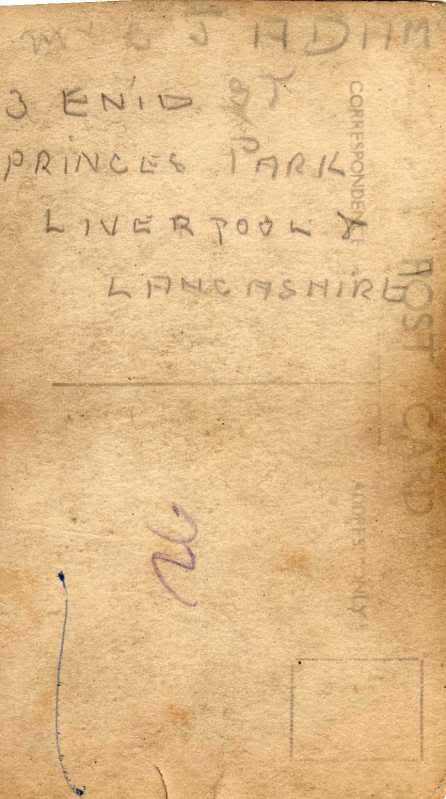 MR E J ADAM
3 ENID ST
PRINCES PARK
LIVERPOOL 8
LANCASHIRE
POST CARD
CORRESPONDENCE
ADDRESS ONLY
26